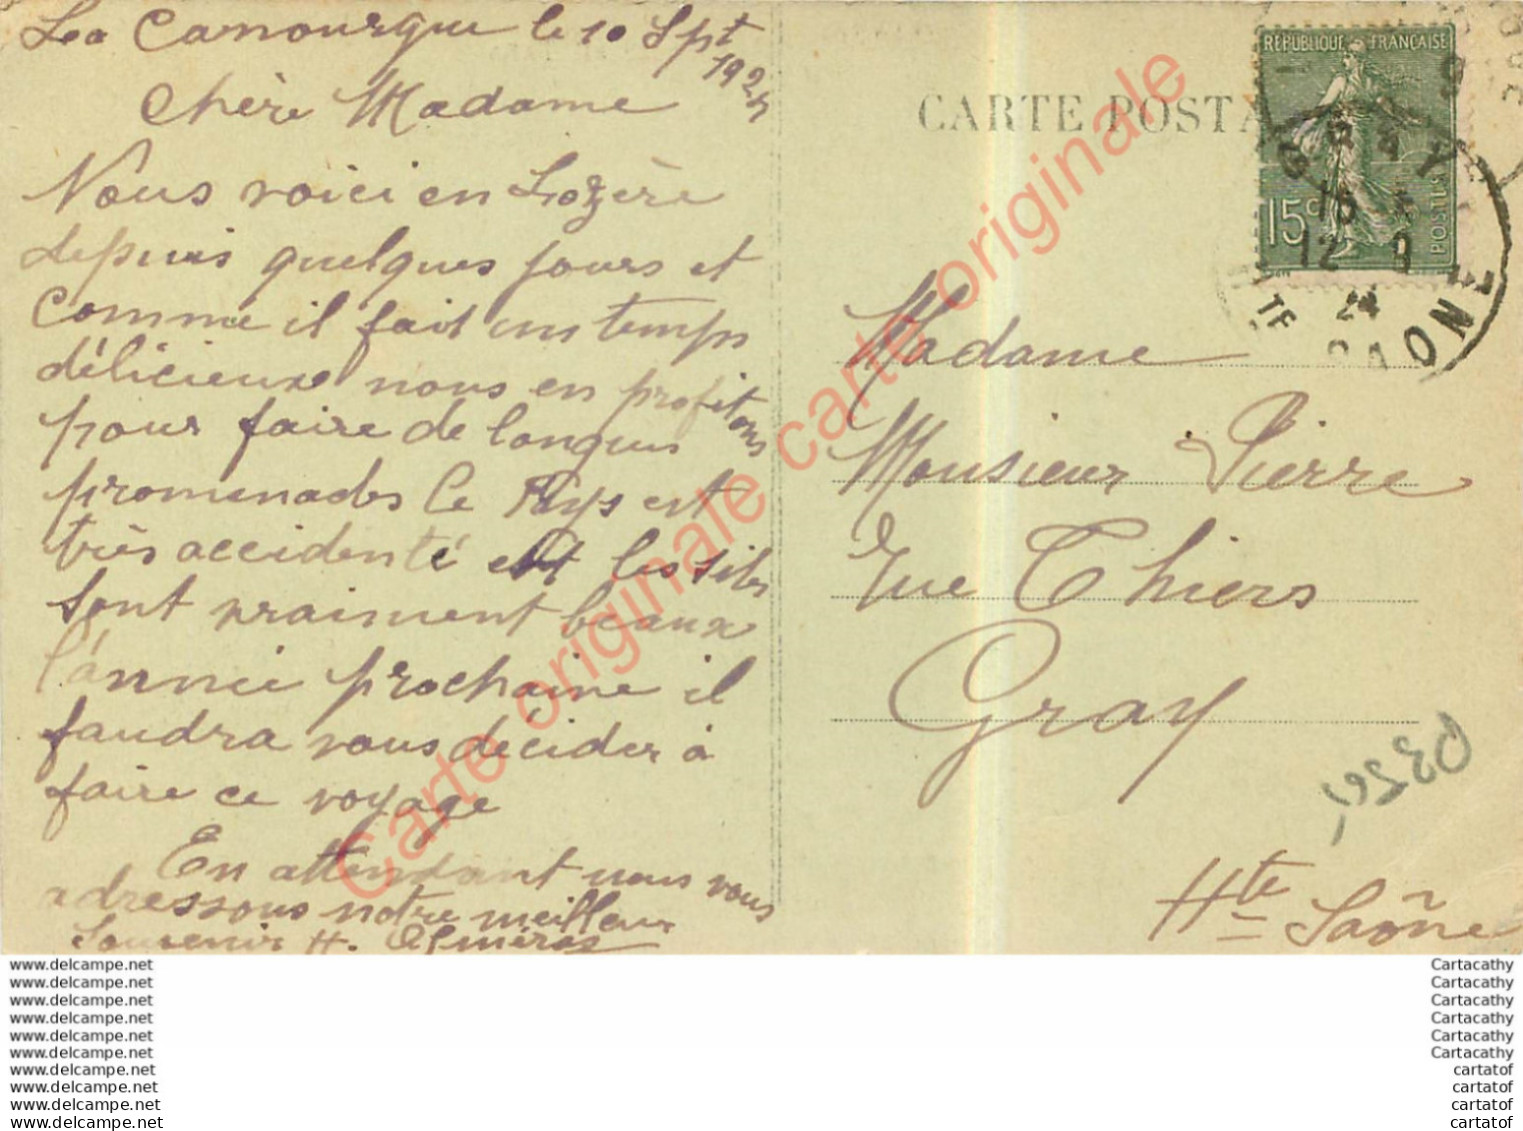 La Canourgue le 10 Spt
1924
Chère Madame
Nous voici en Lozère
depuis quelques jours et
comme il fait un temps
délicieuxe nous en profitons
pour faire de longues
promenades le Pays est
très accidenté et les sites
sont vraiment beaux
l'année prochaine il
faudra vous décider à
faire ce voyage
En attendant nous vous
adressons notre meilleur
Souvenir H.
CARTE POSTA
REPUBLIQUE FRANÇAISE
15c
POSTES
GRAY
15
12 9
24
HTE SAONE
Madame
Monsieur Pierre
Rue Thiers
Gray
Hte Saône
Carte originale carte originale carte originale
www.delcampe.net
www.delcampe.net
www.delcampe.net
www.delcampe.net
www.delcampe.net
www.delcampe.net
www.delcampe.net
www.delcampe.net
www.delcampe.net
www.delcampe.net
Cartacathy
Cartacathy
Cartacathy
Cartacathy
Cartacathy
Cartacathy
cartatof
cartatof
cartatof
cartatof